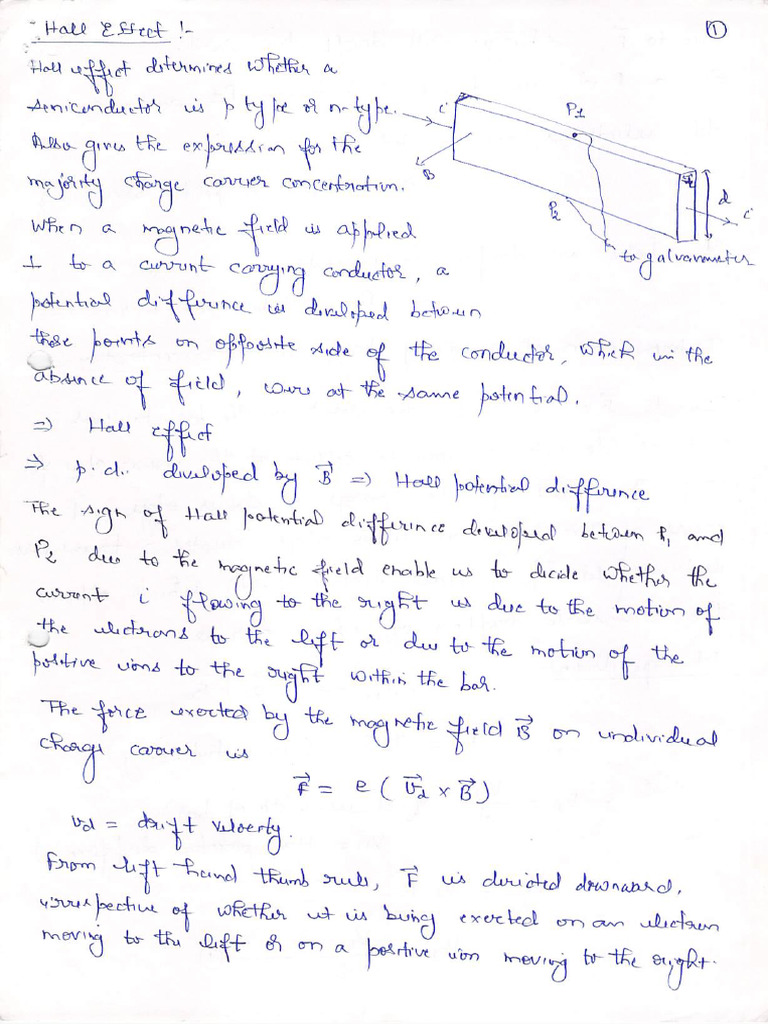 Hall Effect :-
①
Hall effect determines whether a
semiconductor is p type or n-type.
Also gives the expression for the
majority charge carrier concentration.
When a magnetic field is applied
⊥ to a current carrying conductor, a
potential difference is developed between
those points on opposite side of the conductor, which in the
absence of field, were at the same potential.
⇒ Hall effect
⇒ p.d. developed by B⃗ ⇒ Hall potential difference
The sign of Hall potential difference developed between P₁ and
P₂ due to the magnetic field enable us to decide whether the
current i flowing to the right is due to the motion of
the electrons to the left or due to the motion of the
positive ions to the right within the bar.
The force exerted by the magnetic field B⃗ on individual
charge carrier is
F⃗ = e ( v⃗d × B⃗ )
vd = drift velocity.
From left hand thumb rule, F⃗ is directed downward,
irrespective of whether it is being exerted on an electron
moving to the left or on a positive ion moving to the right.
i
P1
B
P2
d
i
to galvanometer